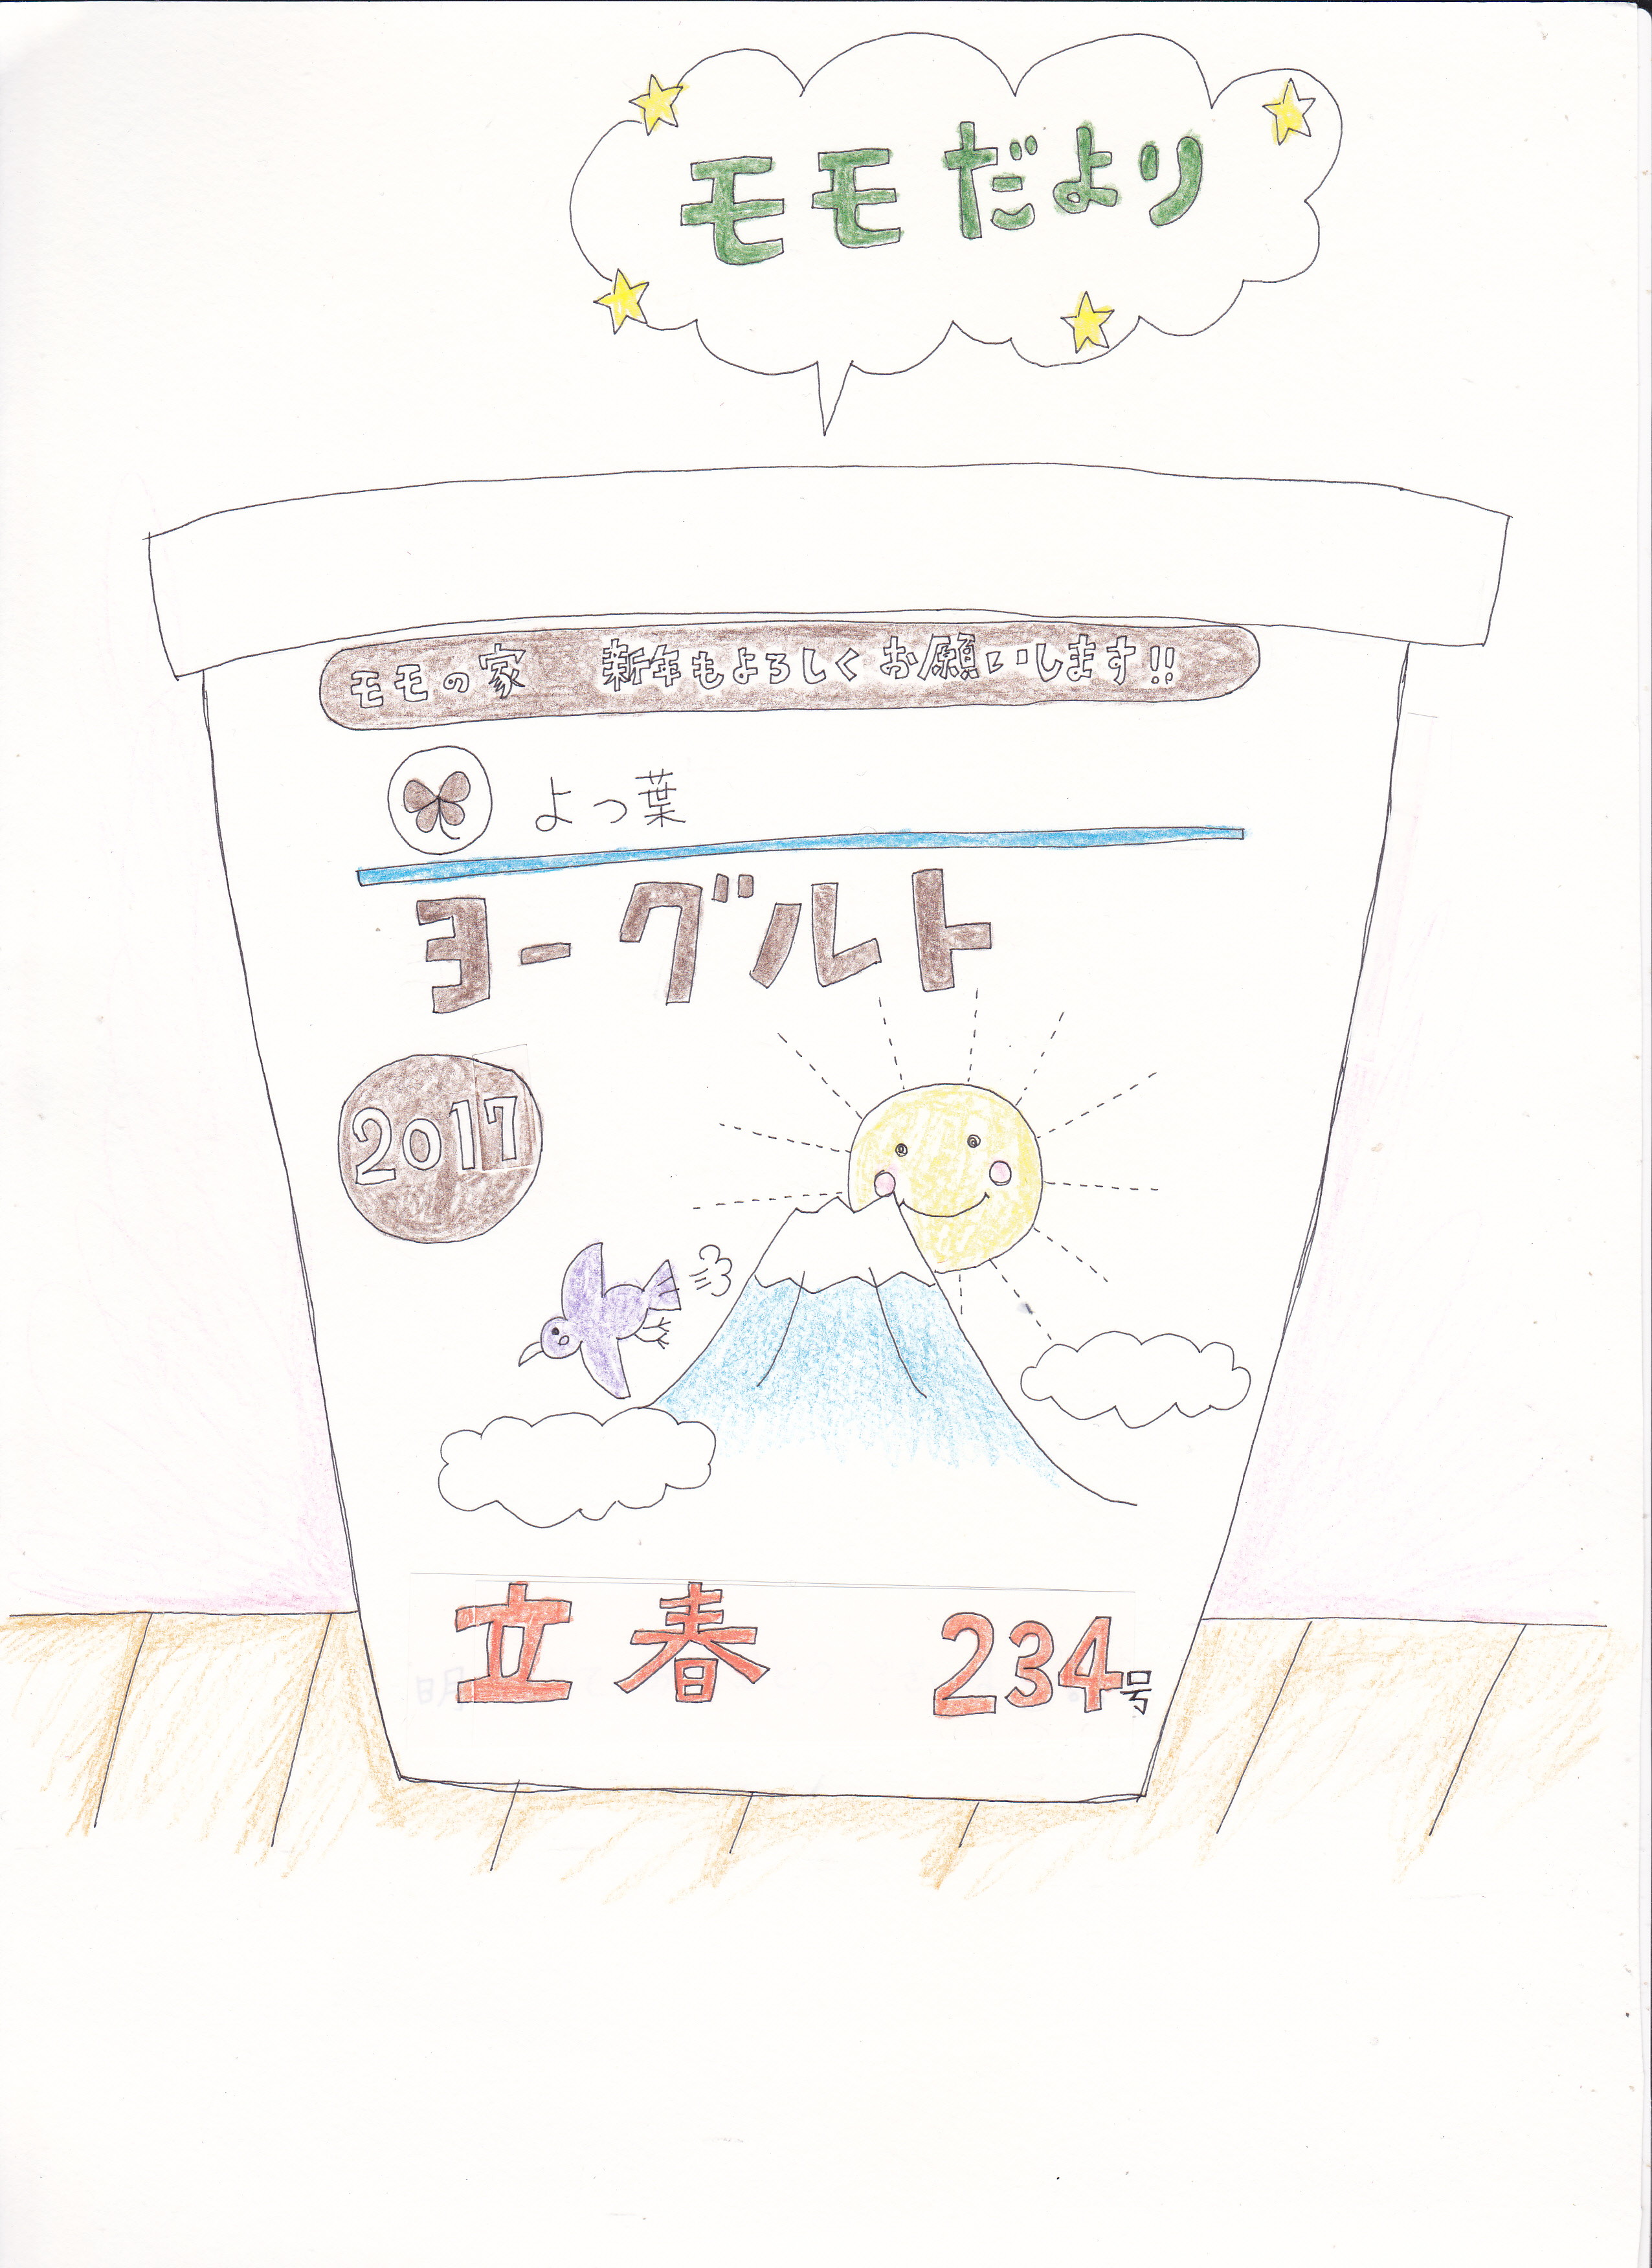 モモだより
モモの家 新年もよろしくお願いします!!
よつ葉
ヨーグルト
2017
立春 234号